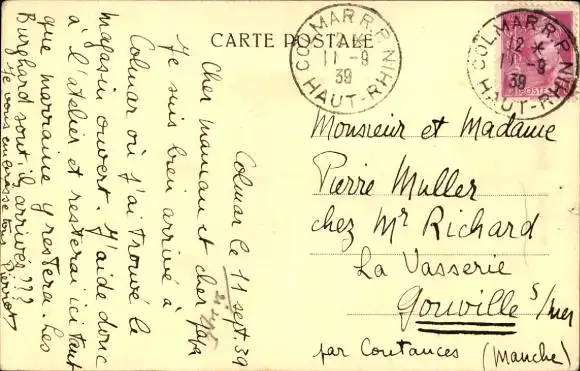 CARTE POSTALE
COLMAR R.P.
12 *
11 -9
39
HAUT-RHIN
COLMAR R.P.
12 *
11 -9
39
HAUT-RHIN
POSTES
Colmar le 11 sept. 39
Cher maman et cher papa
Je suis bien arrivé à
Colmar où j'ai trouvé le
magasin ouvert. J'aide donc
à l'atelier et resterai ici tant
que marraine y restera. Les
Burghard sont-il arrivés???
Je vous embrasse tous Pierrot
Monsieur et Madame
Pierre Muller
chez Mr Richard
La Vasserie
Gouville s/mer
par Coutances (Manche)